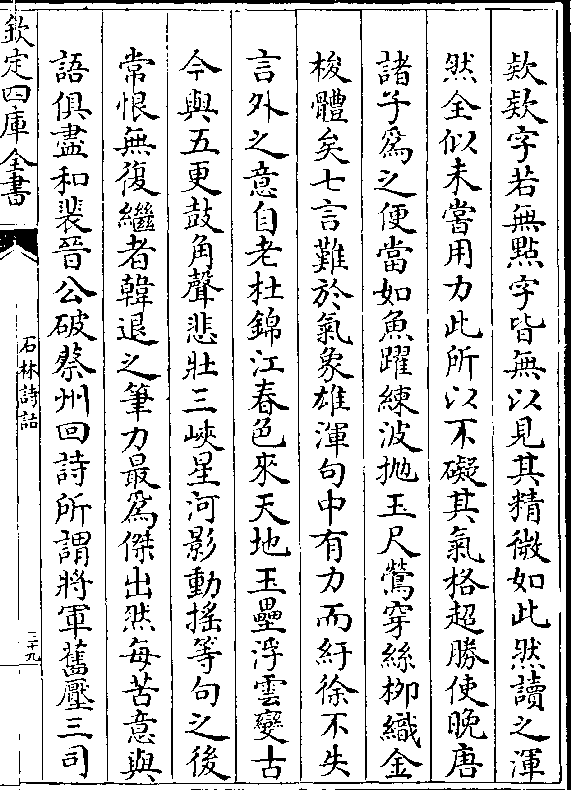 欵欵字若無點字皆無以見其精微如此然讀之渾
然全似未嘗用力此所以不礙其氣格超勝使晚唐
諸子為之便當如魚躍練波抛玉尺鶯穿絲栁織金
梭體矣七言難於氣象雄渾句中有力而紆徐不失
言外之意自老杜錦江春色來天地玉壘浮雲變古
今與五更鼓角聲悲壯三峽星河影動搖等句之後
常恨無復繼者韓退之筆力最為傑出然每苦意與
語俱盡和裴晉公破蔡州回詩所謂將軍舊壓三司
欽定四庫全書
石林詩話
二十九